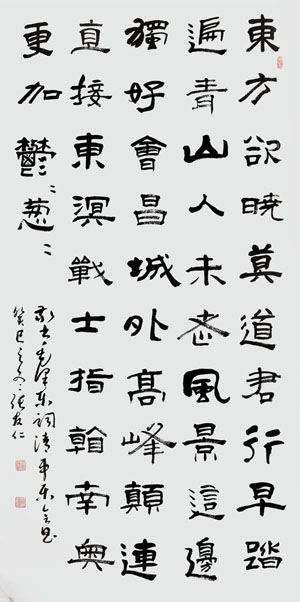 東方欲曉莫道君行早踏
遍青山人未老風景這邊
獨好會昌城外高峰顛連
直接東溟戰士指看南粵
更加鬱〻葱〻
敬书毛澤東詞清平樂會昌
癸巳之冬張友仁